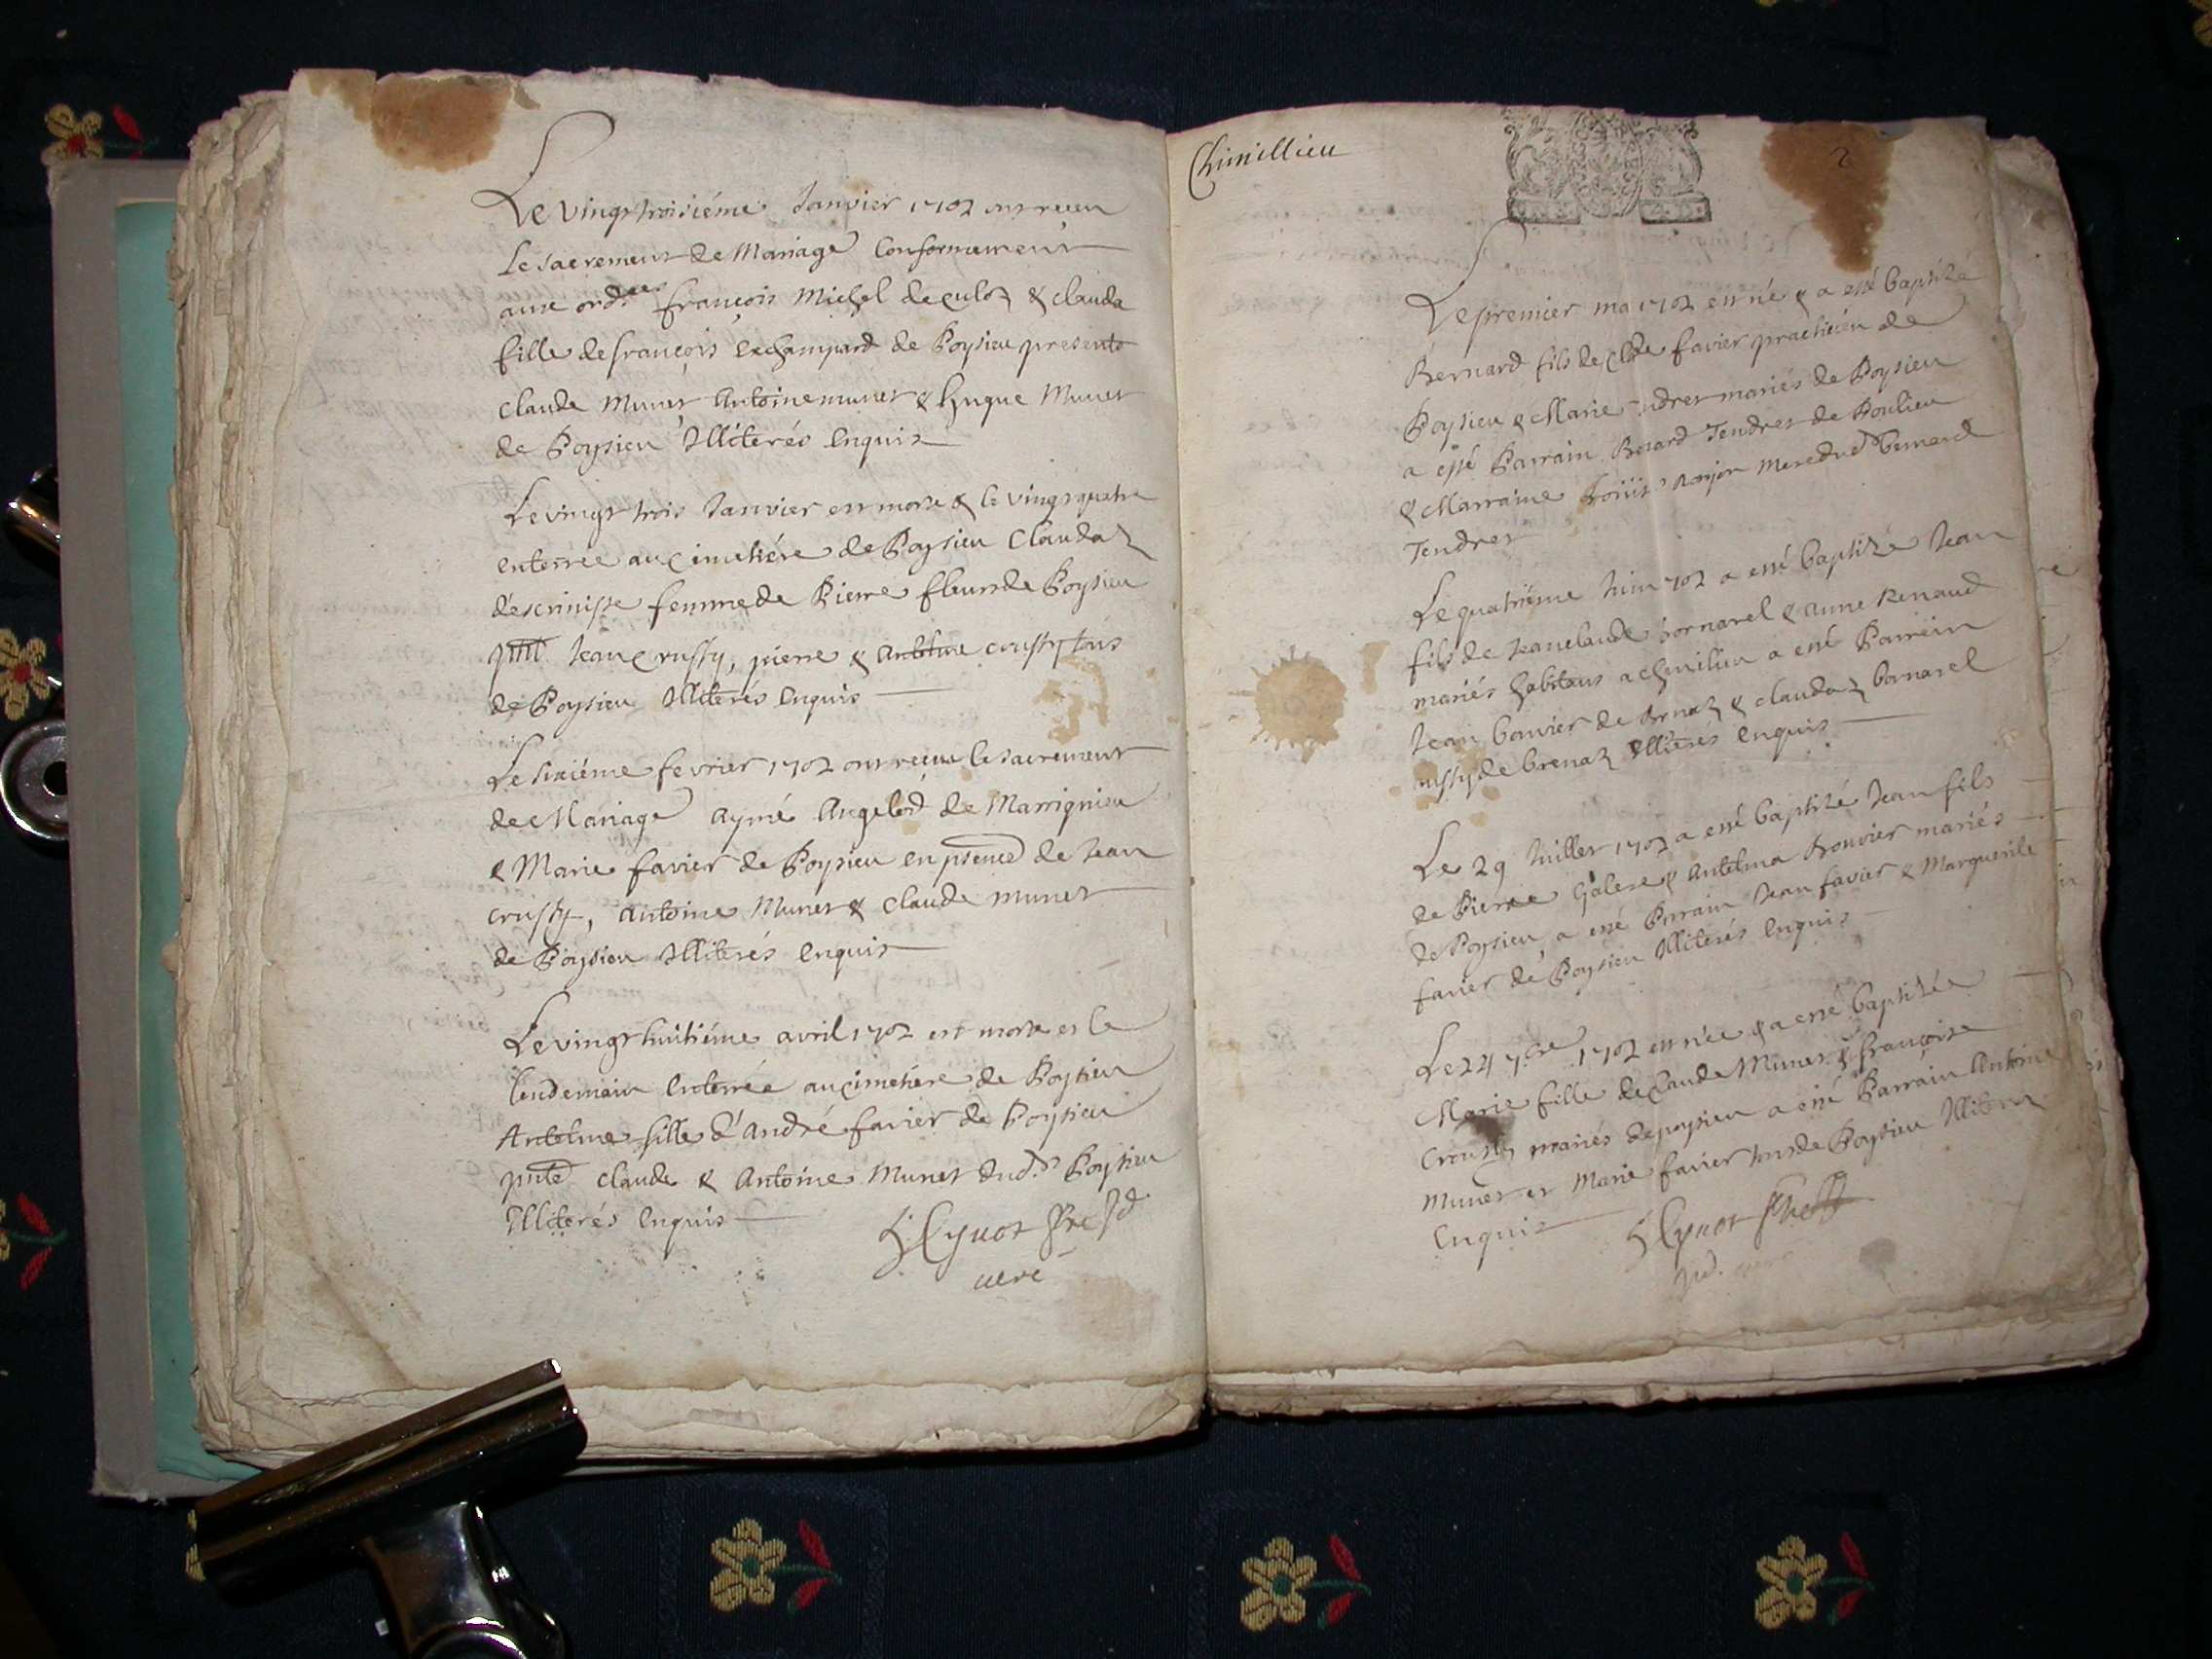 Le vingt troisiéme Janvier 1702 ont receu
le sacrement de Mariage Conformement
aux ordces françois Michel de culoz & clauda
fille de françois Lechampard de Poysieu presents
claude Munet Antoine munet & hugue Munet
de Poysieu Illiterés Enquis
Le vingt trois Janvier est morte & le vingt quatre
enterrée au cimetiére de Poysieu Claudaz
femme de Pierre fleur de Poysieu
Jean crussy, pierre & Antelme crussy tous
de Poysieu Illiterés Enquis
Le sixiéme fevrier 1702 ont receu le sacrement
de Mariage Aymé Angelod de Marrignieu
& Marie favier de Poysieu en psence de Jean
crussy, Antoine Munet & claude munet
de Poysieu Illiterés Enquis
Le vingt huitiéme avril 1702 est morte et le
lendemain Enterrée au cimetiére de Poysieu
Antelme fille d'André favier de Poysieu
pnts claude & Antoine Munet dud. Poysieu
Illiterés Enquis
curé
Chimillieu
2
Le premier may 1702 est né & a esté baptizé
Bernard fils de Clde favier practicien de
Poysieu & Marie mariés de Poysieu
a esté Parrain Tendret de
& Marraine Bernard
Tendret
Le quatriéme Juin 702 a esté baptizé Jean
fils de Jean claude bornarel & anne Renaud
mariés habitans a chemilieu a esté Parrein
Jean bouvier de brenaz & claudaz bornarel
aussy de brenaz Illiterés Enquis
Le 29 Juillet 1702 a esté baptizé Jean fils
de Pierre & Antelma Bouvier mariés
de Poysieu a esté Parrain Jean favier & Marguerite
favier de Poysieu Illiterés Enquis
Le 24 7bre 1702 est née & a esté baptizée
Marie fille de Claude Munet & françoise
mariés de poysieu a esté Parrain Antoine
Munet et Marie favier tous de Poysieu Illiteres
Enquis